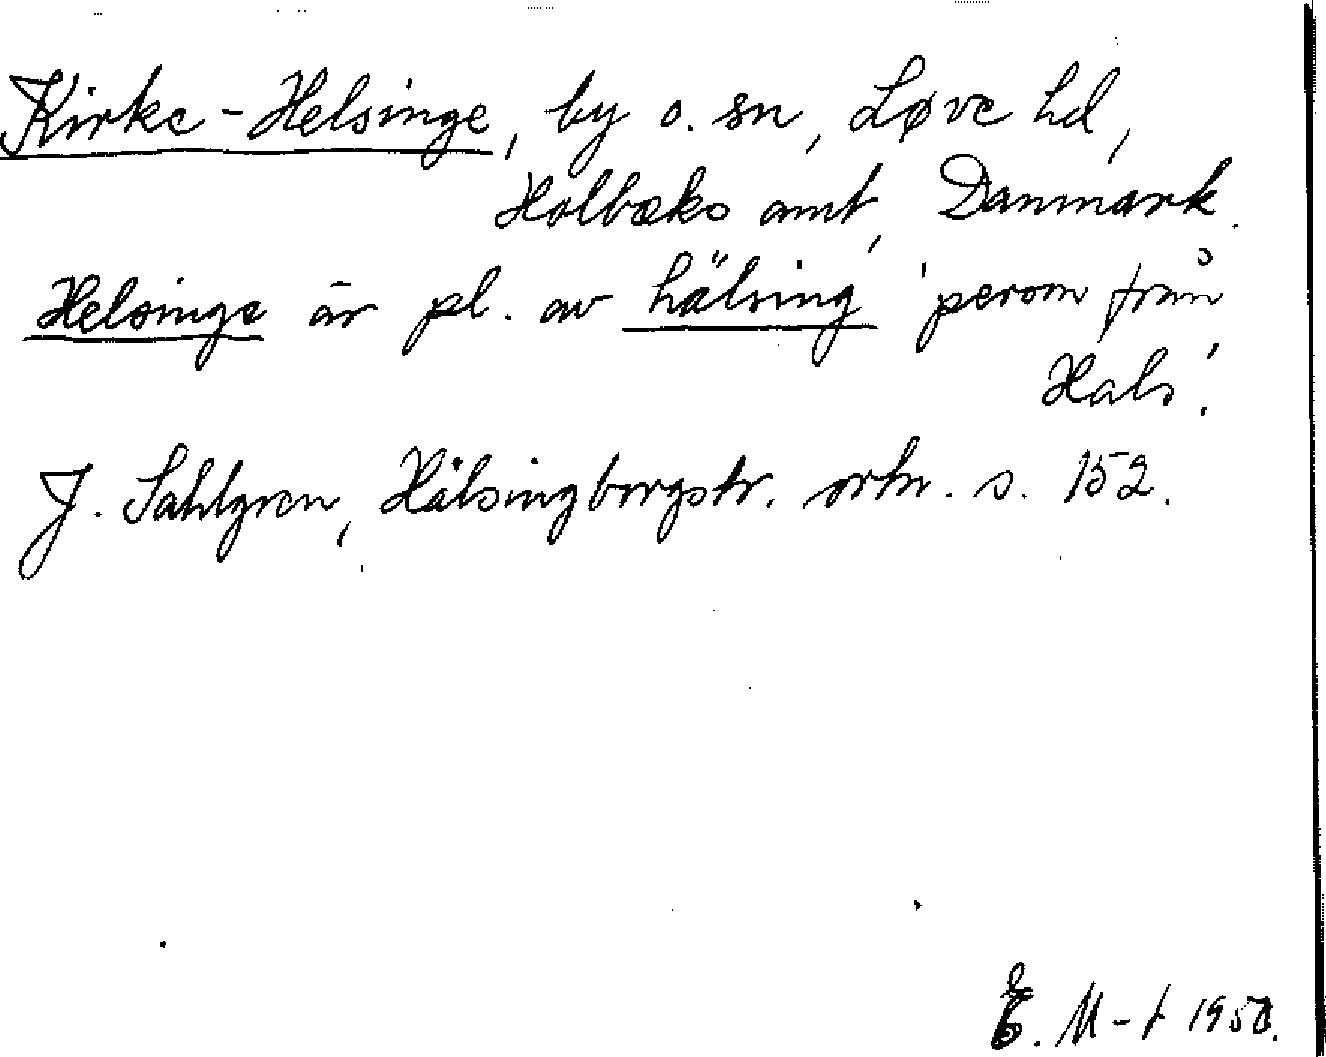 Kirke-Helsinge, by o. sn, Løve hd,
Holbæks amt, Danmark.
Helsinge är pl. av hälsing 'person från
Hals'.
J. Sahlgren, Hälsingborgstr. ortn. s. 152.
E. M-t